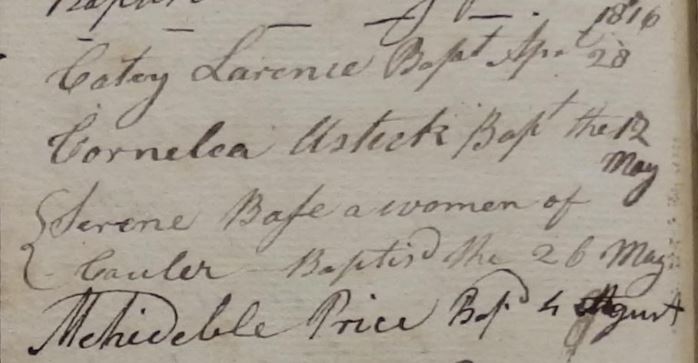 1816
Catey Larence Bapt Apr 28
Cornelea Usteck Bapt the 12
May
Serene Base a women of
Cauler Baptisd the 26 May
Mehideble Price Bapd 4 August